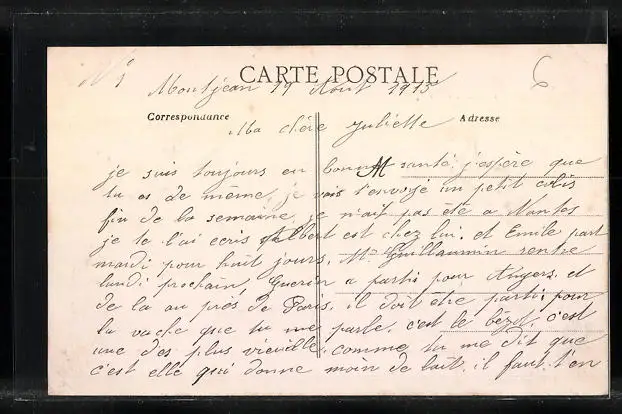 N° 1
CARTE POSTALE
6
Montjean 19 Aout 1915
Correspondance
Adresse
Ma chère Juliette
je suis toujours en bonne santé, j'espère que
tu es de même, je vais t'envoyé un petit colis
fin de la semaine, je n'ait pas été a Nantes
je te l'ai écris Albert est chez lui, et Emile part
mardi pour huit jours, Mr Guillaumin rentre
lundi prochain, Guerin a partis pour Angers, et
de la au près de Paris, il doit etre partis, pour
la vache que tu me parle, c'est le c'est
une des plus vieuille, comme tu me dit que
c'est elle qui donne moin de lait, il faut t'en